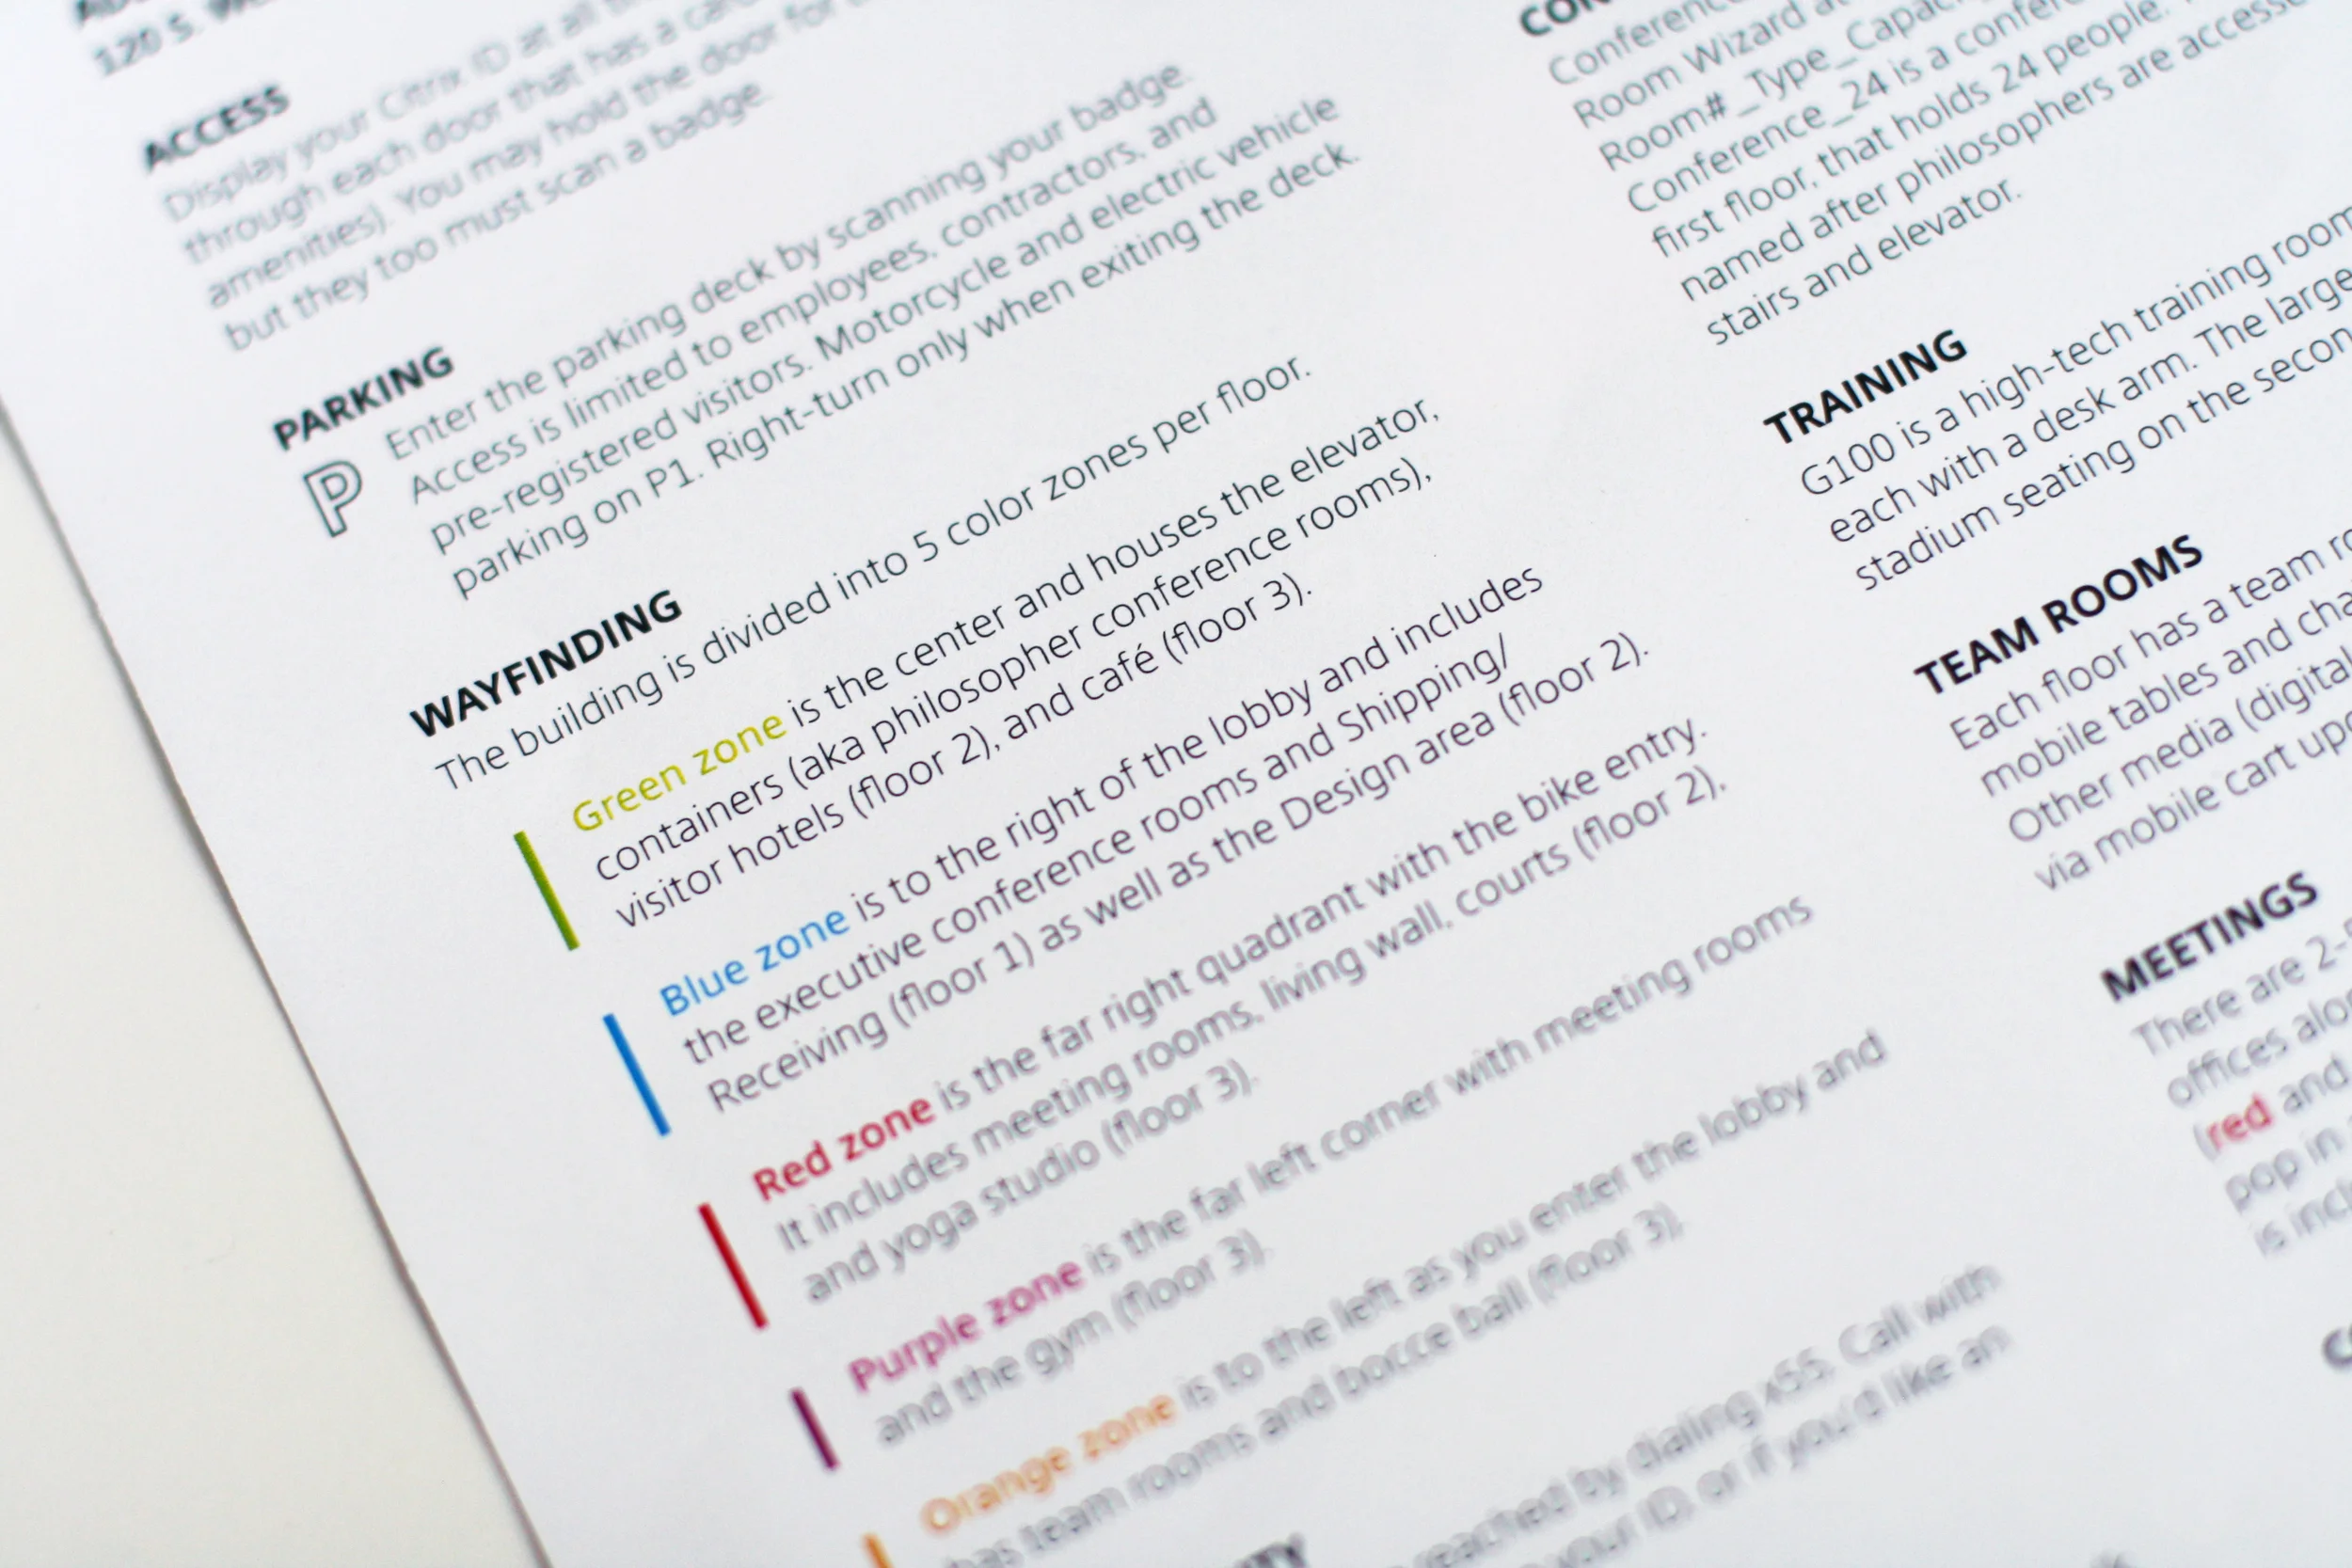 120 S.
ACCESS
Display your Citrix ID at all
through each door that has a card
amenities). You may hold the door for
but they too must scan a badge.
PARKING
P
Enter the parking deck by scanning your badge.
Access is limited to employees, contractors, and
pre-registered visitors. Motorcycle and electric vehicle
parking on P1. Right-turn only when exiting the deck.
WAYFINDING
The building is divided into 5 color zones per floor.
Green zone is the center and houses the elevator,
containers (aka philosopher conference rooms),
visitor hotels (floor 2), and café (floor 3).
Blue zone is to the right of the lobby and includes
the executive conference rooms and Shipping/
Receiving (floor 1) as well as the Design area (floor 2).
Red zone is the far right quadrant with the bike entry.
It includes meeting rooms, living wall, courts (floor 2),
and yoga studio (floor 3).
Purple zone is the far left corner with meeting rooms
and the gym (floor 3).
Orange zone is to the left as you enter the lobby and
has team rooms and bocce ball (floor 3).
reached by dialing x55. Call with
your ID, or if you'd like an
Conference
Room Wizard
Room#_Type_Capacity
Conference_24 is a
first floor, that holds 24 people.
named after philosophers are
stairs and elevator.
TRAINING
G100 is a high-tech training room
each with a desk arm. The
stadium seating on the
TEAM ROOMS
Each floor has a team
mobile tables and
Other media (digital
via mobile cart
MEETINGS
There are
offices
(red and
pop in
is